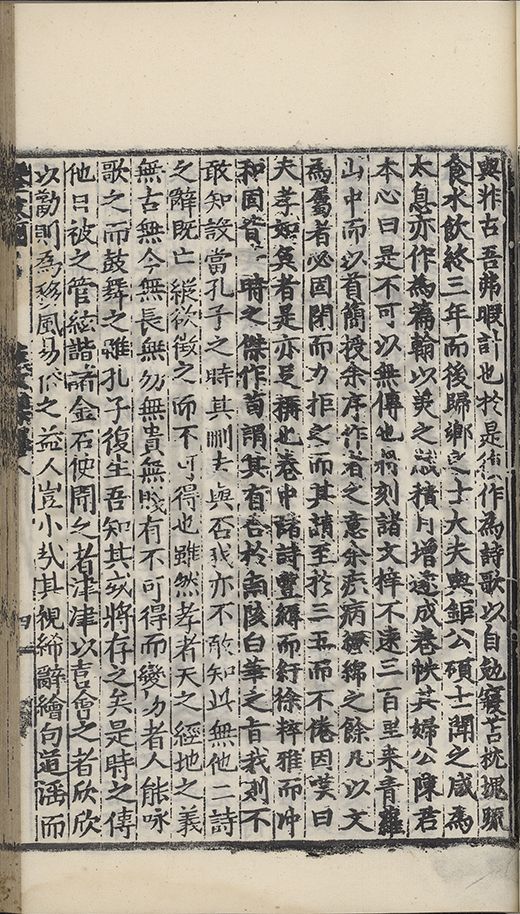 與非古吾弗暇計也於是作為詩歌以自勉寢苫枕塊蔬
食水飲終三年而後歸鄉之士大夫與鉅公碩士聞之咸為
太息亦作為篇翰以美之歲積月增遂成卷帙其婦公陳君
本心曰是不可以無傳也將刻諸文梓不遠三百里來青蘿
山中而以首簡授余序作者之意余疾病纏綿之餘凡以文
為屬者必固閉而力拒之而其請至於三五而不倦因嘆曰
夫孝如奐者是亦足稱也卷中諸詩豐縟而紆徐粹雅而沖
和固皆一時之傑作苟謂其有合於南陔白華之旨我則不
敢知設當孔子之時其刪去與否我亦不敢知此無他二詩
之辭既亡縱欲徵之而不可得也雖然孝者天之經地之義
無古無今無長無幼無貴無賤有不可得而變易者人能咏
歌之而鼓舞之雖孔子復生吾知其或將存之矣是時之傳
他日被之管絃諧諸金石使聞之者津津以喜會之者欣欣
以勸則為移風易俗之益人豈小哉其視絺辭繪句道淫而